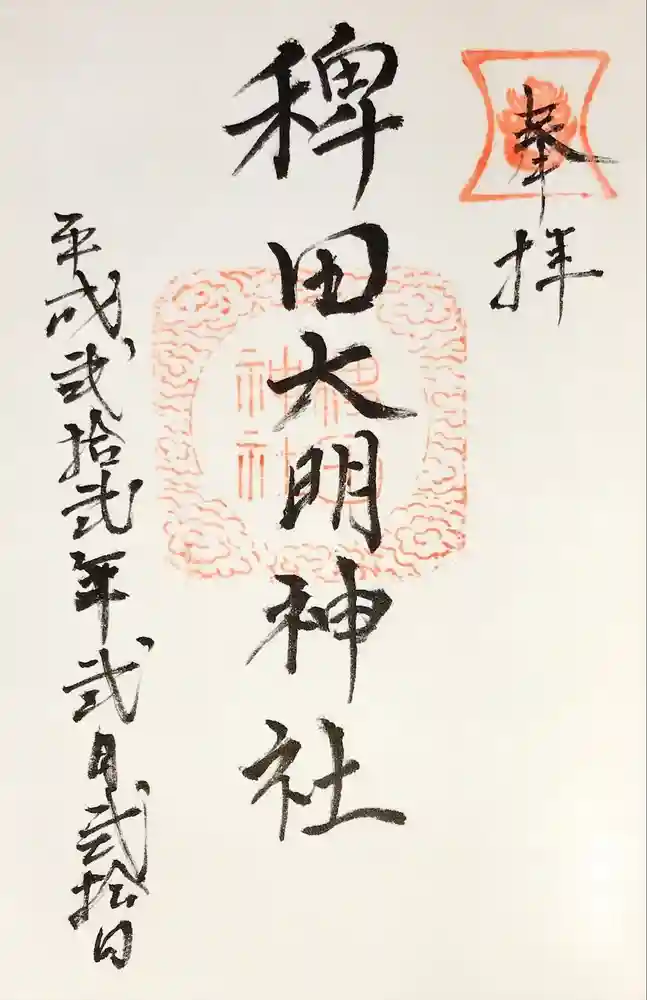 奉拝
稗田大明神社
稗田
神社
平成弐拾弐年弐月弐拾日